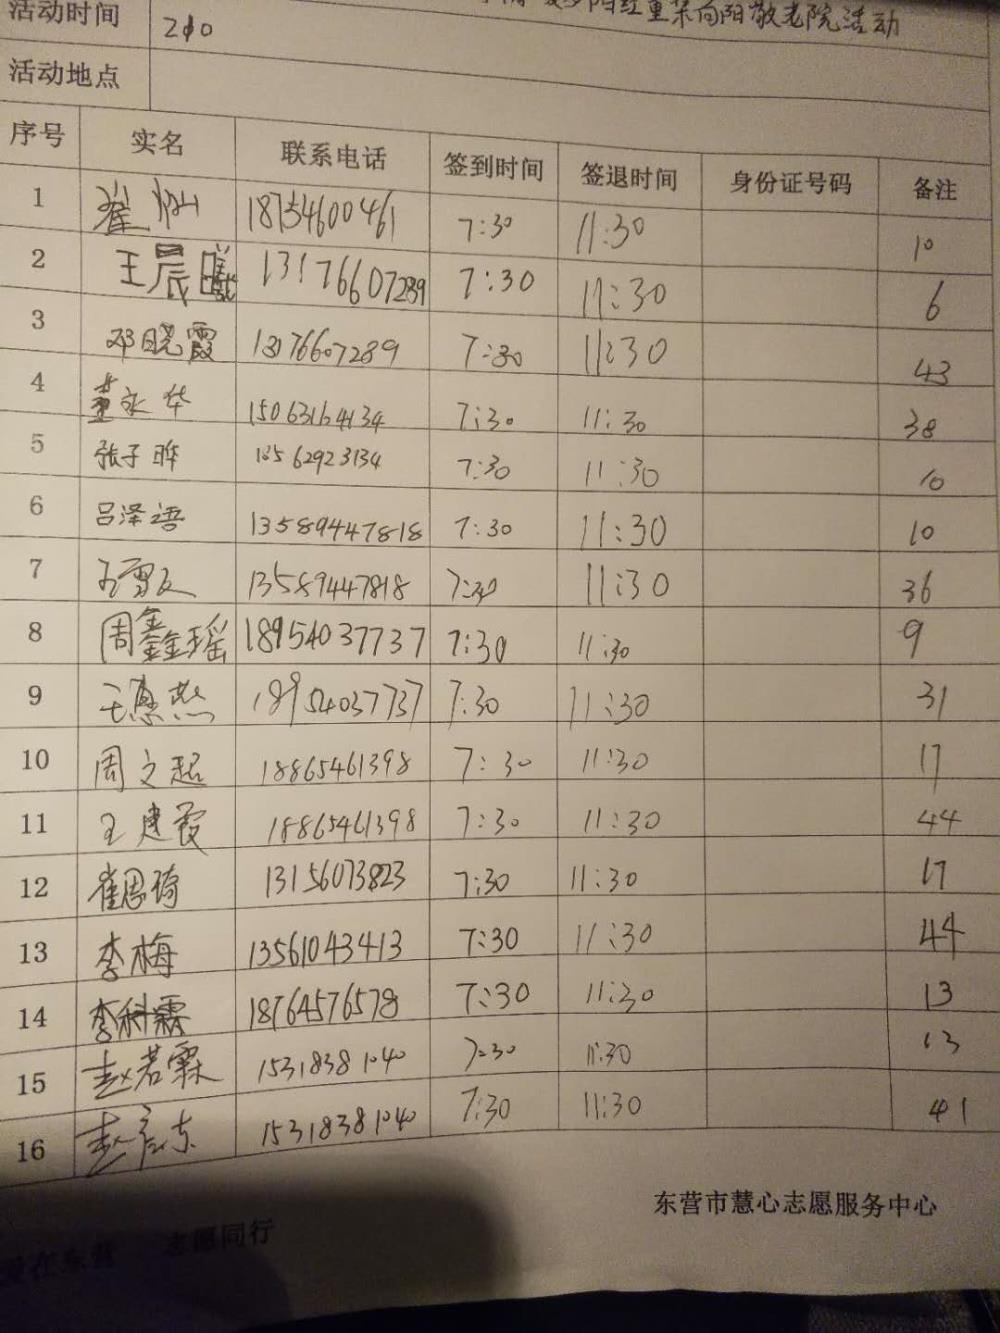 活动时间
阳红重菜向阳敬老院活动
活动地点
序号 实名 联系电话 签到时间 签退时间 身份证号码 备注
1 18754600461 7:30 11:30 10
2 王晨曦 13176607289 7:30 11:30 6
3 邓晓霞 13176607289 7:30 11:30 43
4 董永华 15063164134 7:30 11:30 38
5 张子晔 13562923134 7:30 11:30 10
6 吕泽语 13589447818 7:30 11:30 10
7 13589447818 7:30 11:30 36
8 周鑫瑶 18954037737 7:30 11:30 9
9 王惠燕 18954037737 7:30 11:30 31
10 周文超 18865461398 7:30 11:30 17
11 王建霞 18865461398 7:30 11:30 44
12 崔恩琦 13156073823 7:30 11:30 17
13 李梅 13561043413 7:30 11:30 44
14 李科霖 18764576578 7:30 11:30 13
15 赵若霖 15318381040 7:30 11:30 13
16 赵彦东 15318381040 7:30 11:30 41
东营市慧心志愿服务中心
爱在东营 志愿同行